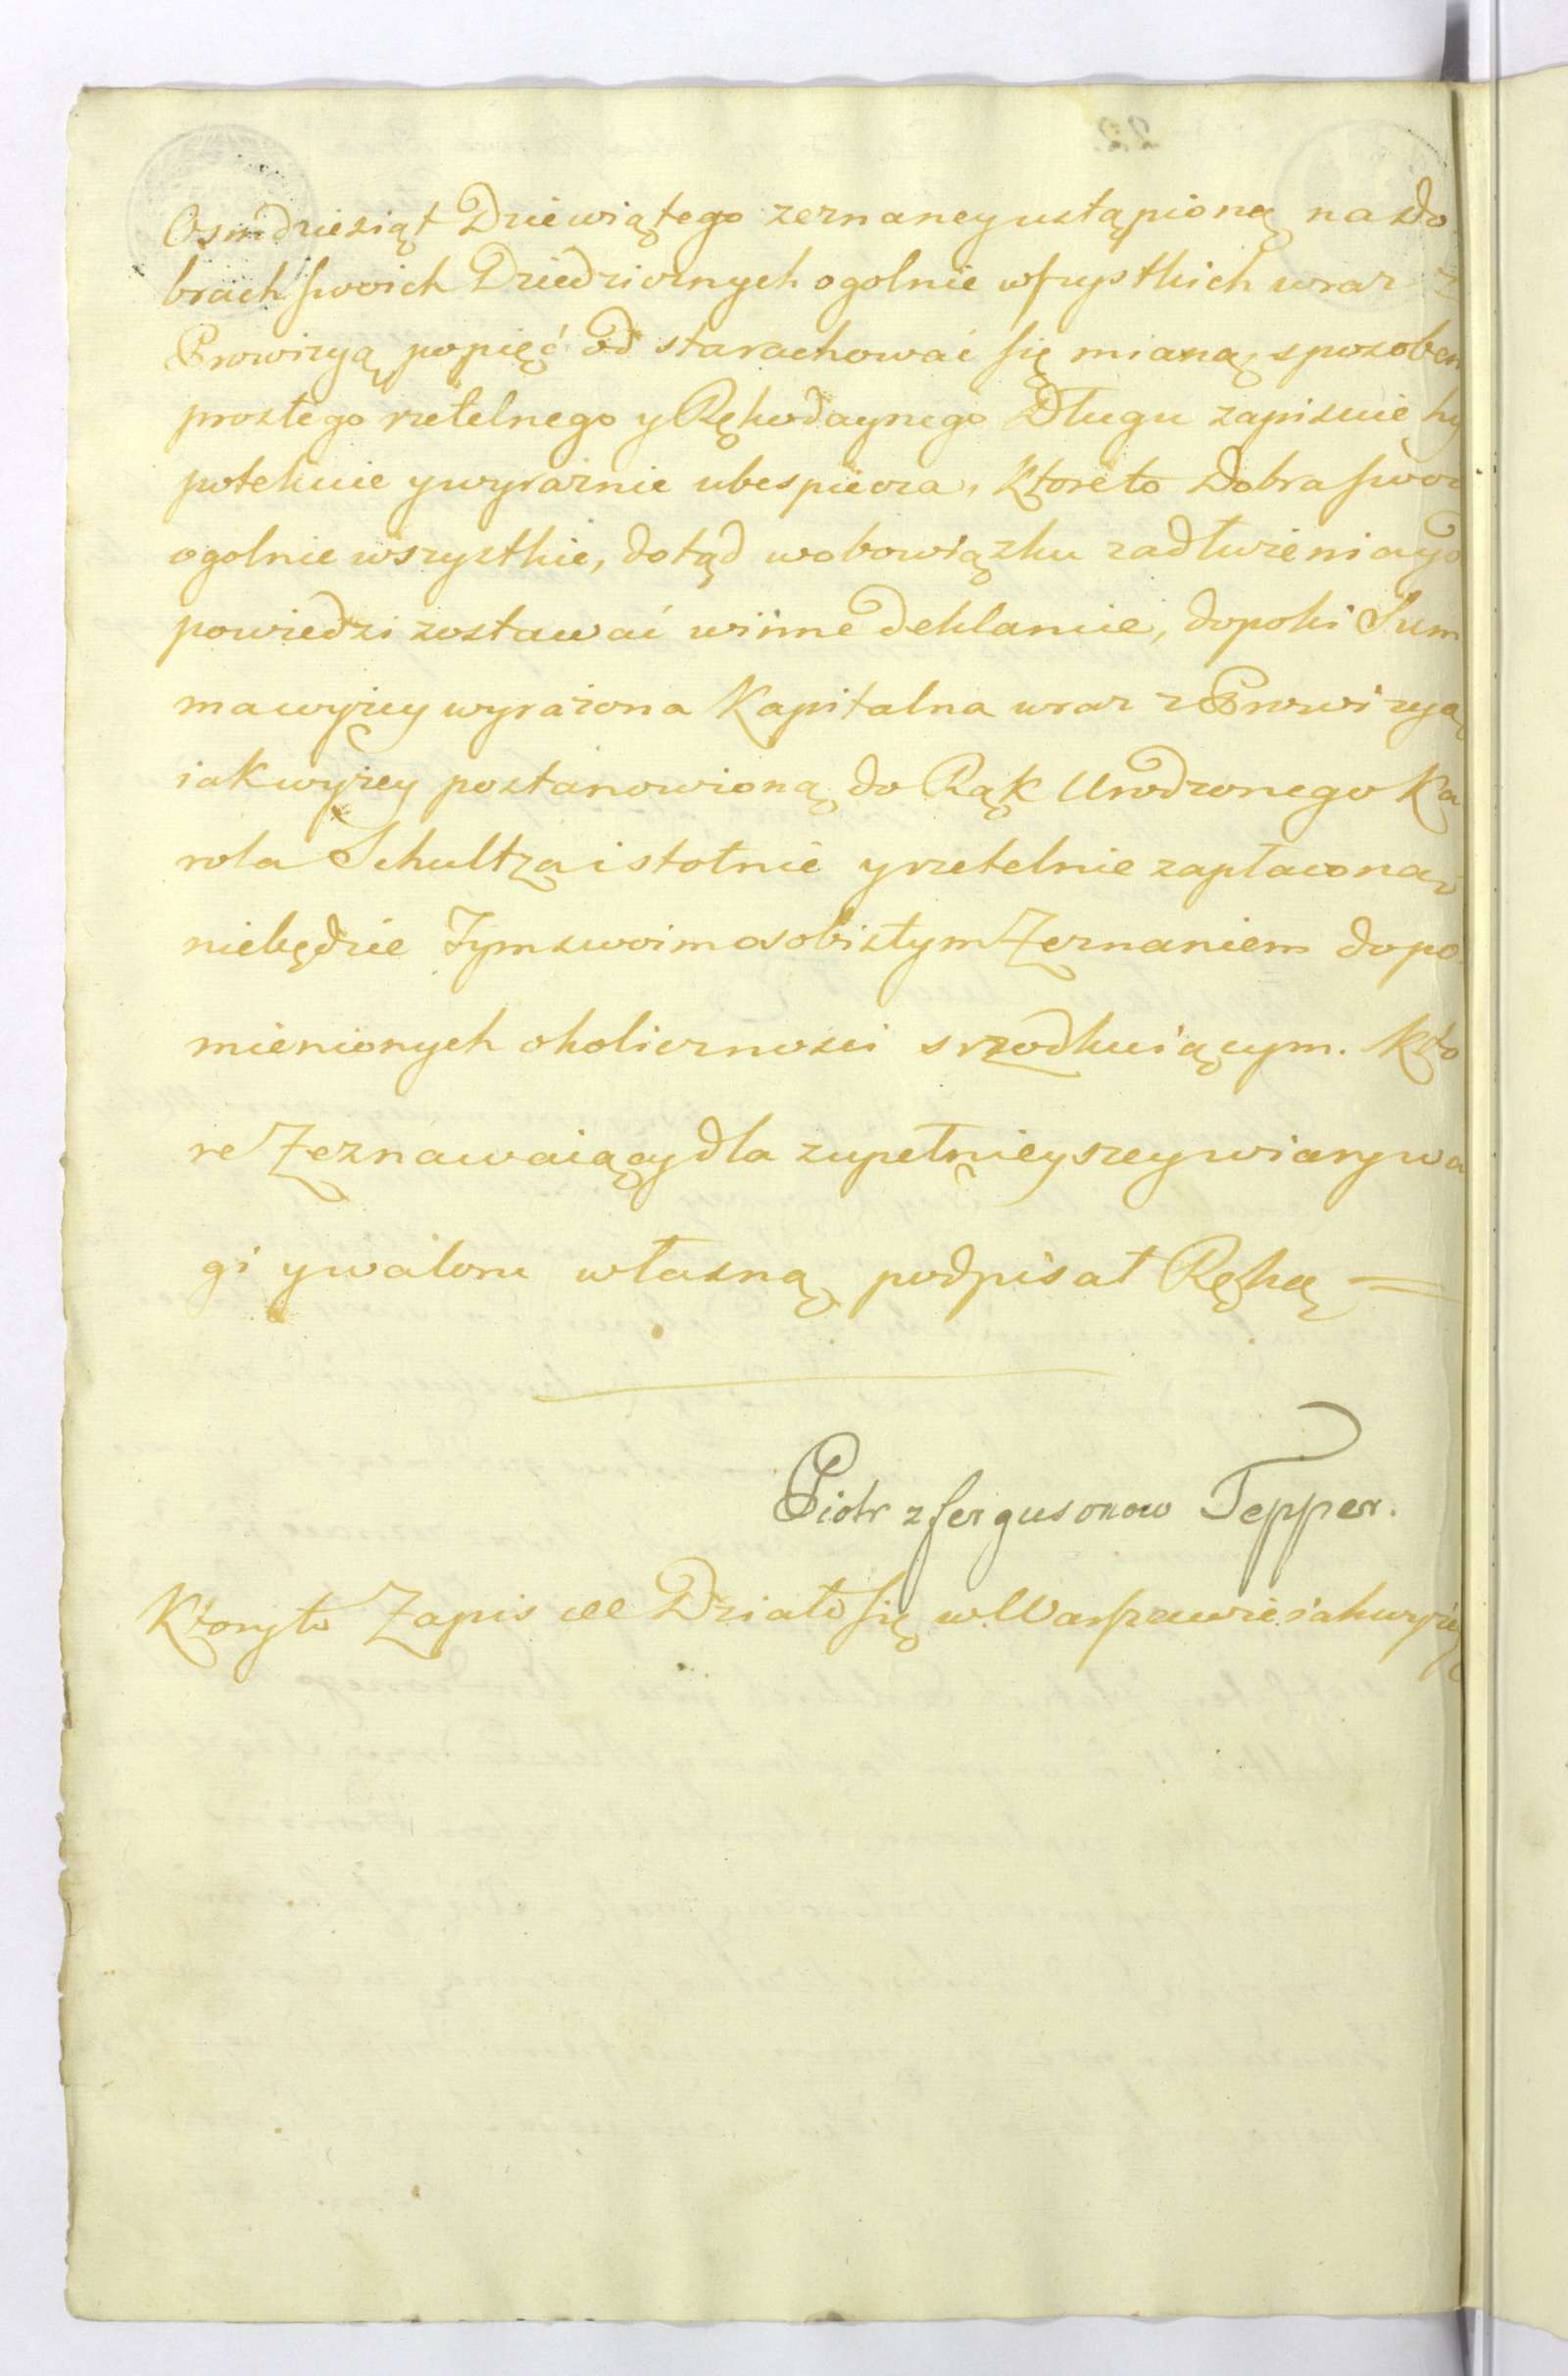 Osmdziesiąt Dziewiątego zeznaney ustąpioną na Do
brach swoich Dziedzicznych ogolnie wszystkich wraz z
Prowizyą po pięć od sta rachować się mianą, sposobem
prostego rzetelnego y Rękodaynego Długu zapisuie hy
potekuie y wyraznie ubespiecza, ktore to Dobra swoie
ogolnie wszystkie, dotąd w obowiązku zadłużenia y o
powiedzi zostawać winne deklaruie, dopoki Sum
ma wyżey wyrażona Kapitalna wraz z Prowizyą
iak wyżey postanowioną do Rąk Urodzonego Ka
rola Schultza istotnie y rzetelnie zapłacona
niebędzie Tym swoim osobistym Zeznaniem do po
mienionych okoliczności srzodkuiącym. Kto
re Zeznawaiący dla zupełnieyszey wiary wa
gi y waloru własną podpisał Ręką =
Piotr z fergusonow Tepper.
Ktory to Zapis ut Działo się w Warszawie iak wyżey